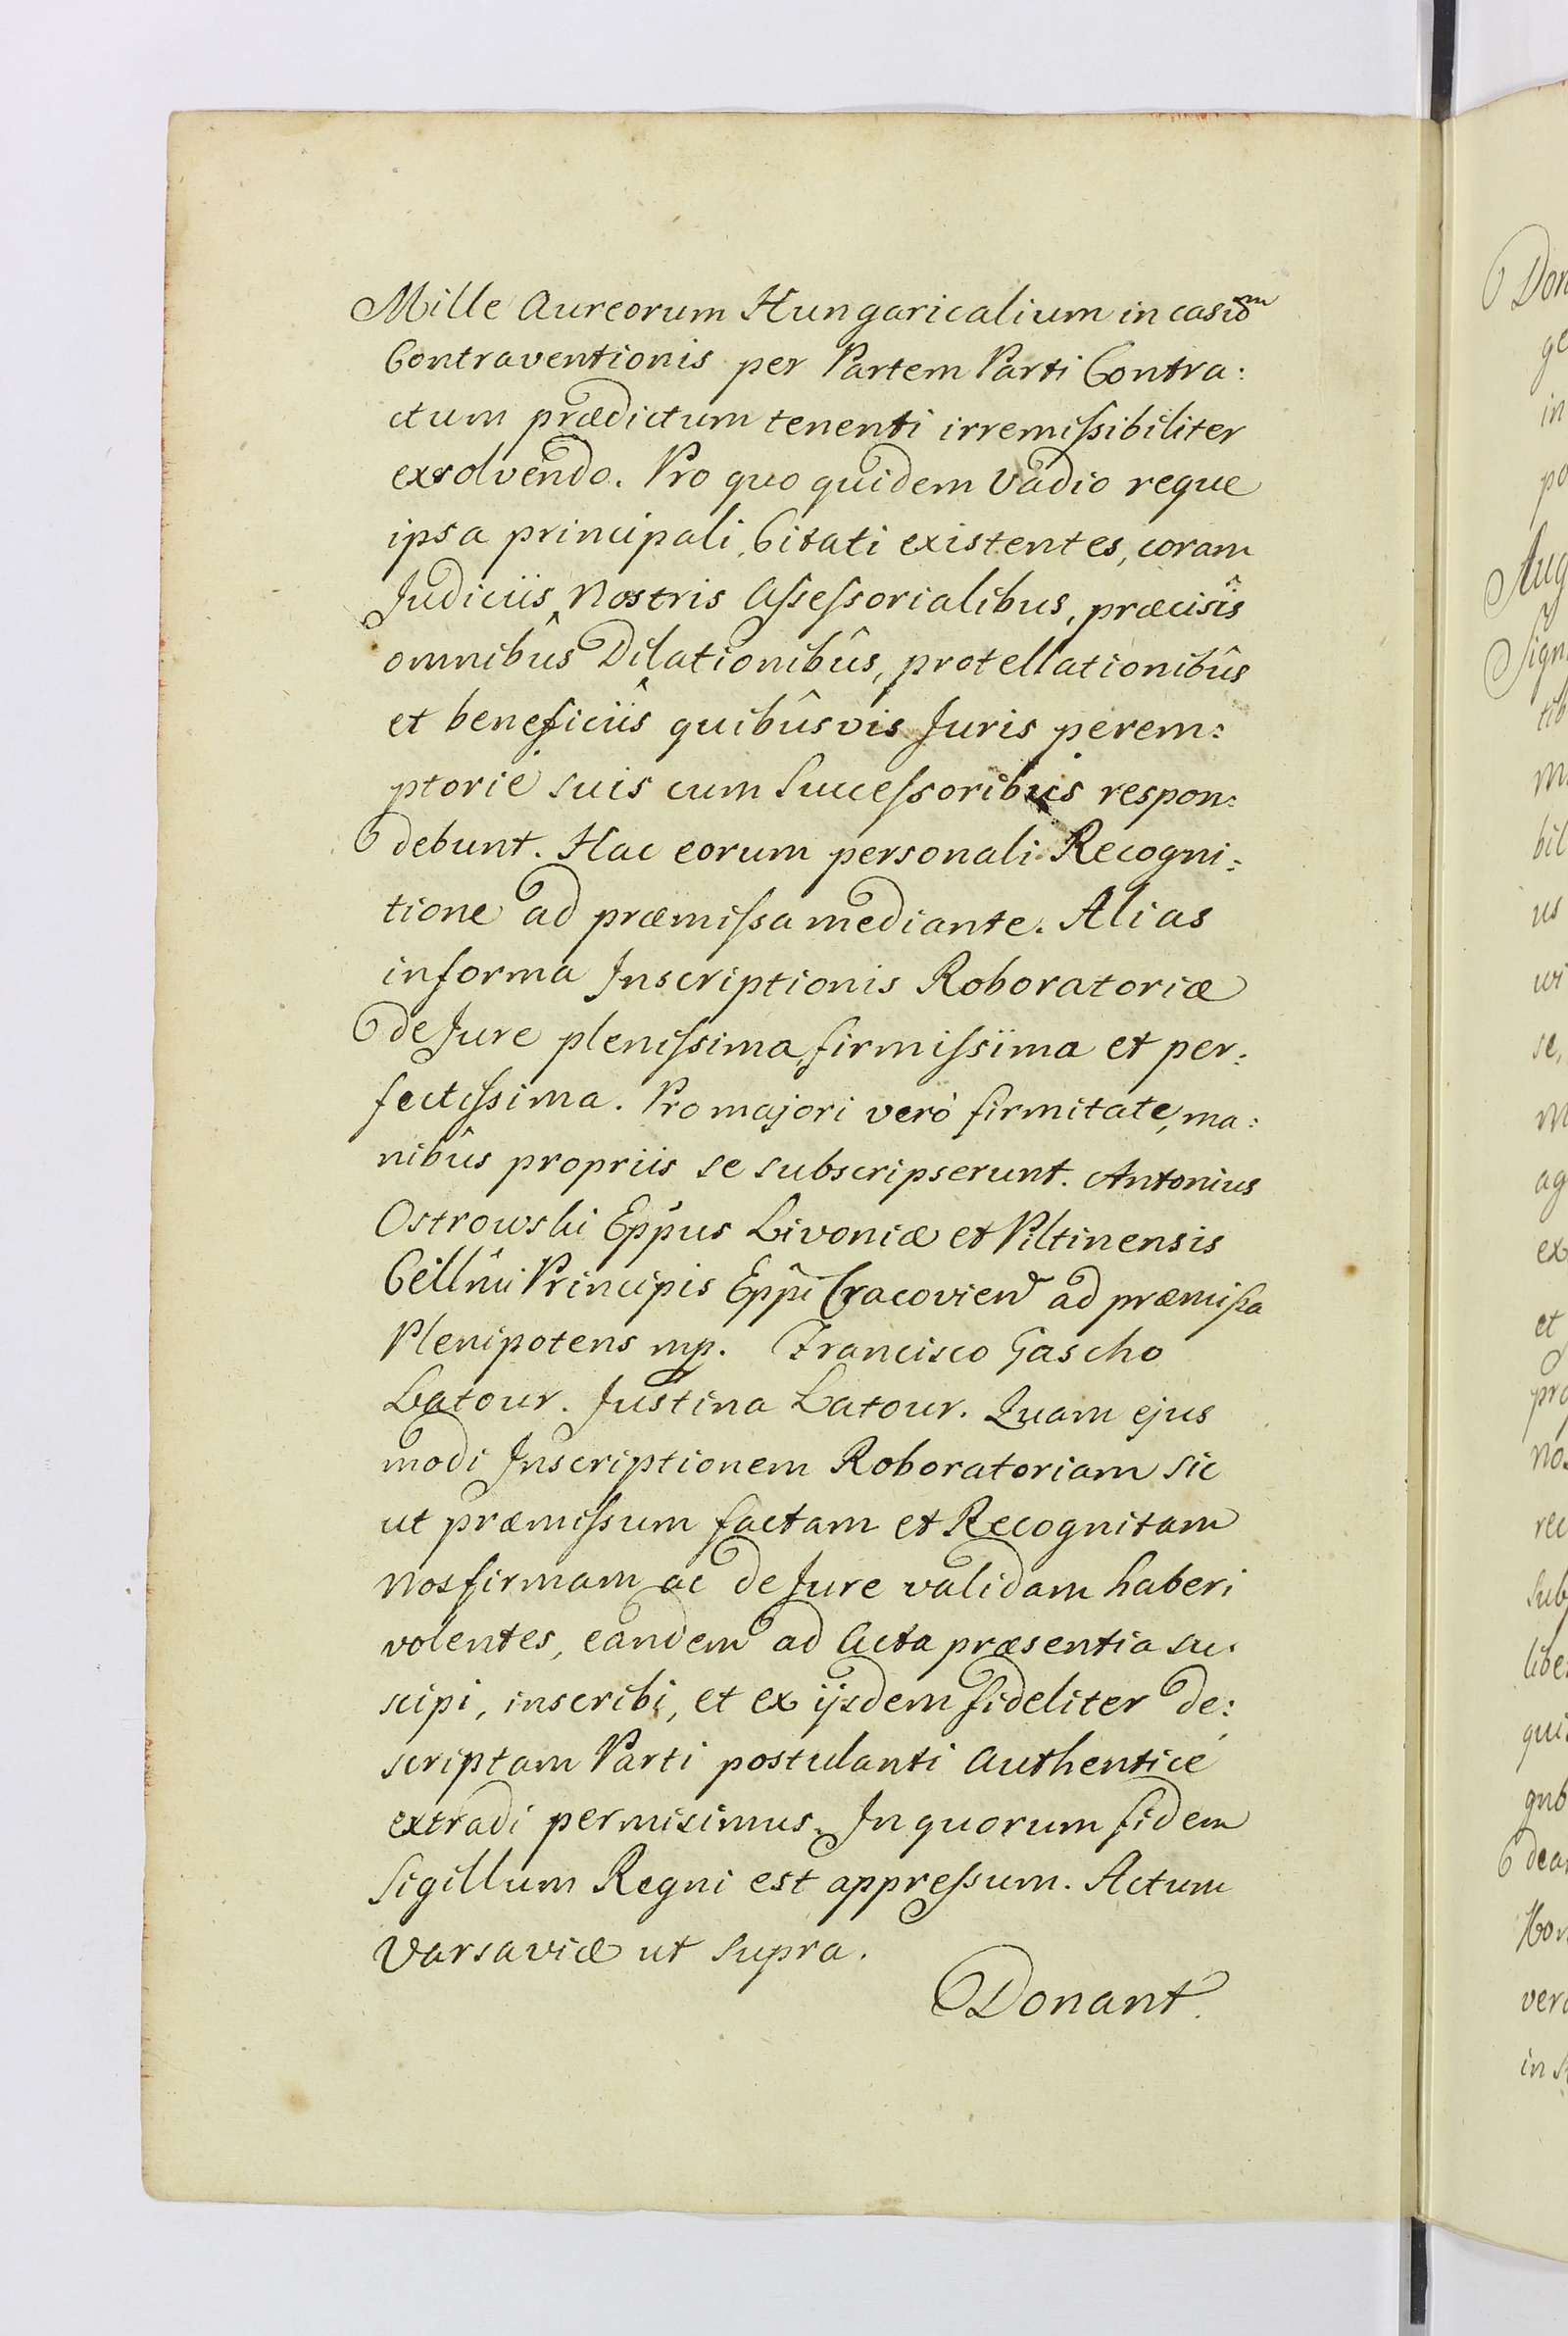 Mille Aureorum Hungaricalium in casũm
Contraventionis per Partem Parti Contra:
ctum prædictum tenenti irremissibiliter
exolvendo. Pro quo quidem Vadio reque
ipsa principali, Citati existentes, coram
Judiciis Nostris Assessorialibus, præcisîs
omnibûs Dilationibûs, protellationibûs
et beneficiîs quibûsvis Juris perem:
ptoriè suis cum Successoribus respon:
debunt. Hac eorum personali Recogni:
tione ad præmissa mediante. Alias
in forma Inscriptionis Roboratoriæ
de Jure plenissima, firmissima et per:
fectissima. Pro majori verò firmitate, ma:
nibûs propriis se subscripserunt. Antonius
Ostrowski Eppus Livoniæ et Piltinensis
Cellmi Principis Eppi Cracovien ad præmissa
Plenipotens mp. Francisco Gascho
Latour. Justina Latour. Quam ejus
modi Inscriptionem Roboratoriam sic
ut præmissum factam et Recognitam
Nos firmam ac de Jure validam haberi
volentes, eandem ad Acta præsentia su:
scipi, inscribi, et ex ijsdem fideliter de:
scriptam Parti postulanti Authenticè
extradi permisimus. In quorum fidem
Sigillum Regni est appressum. Actum
Varsaviæ ut supra.
Donant.